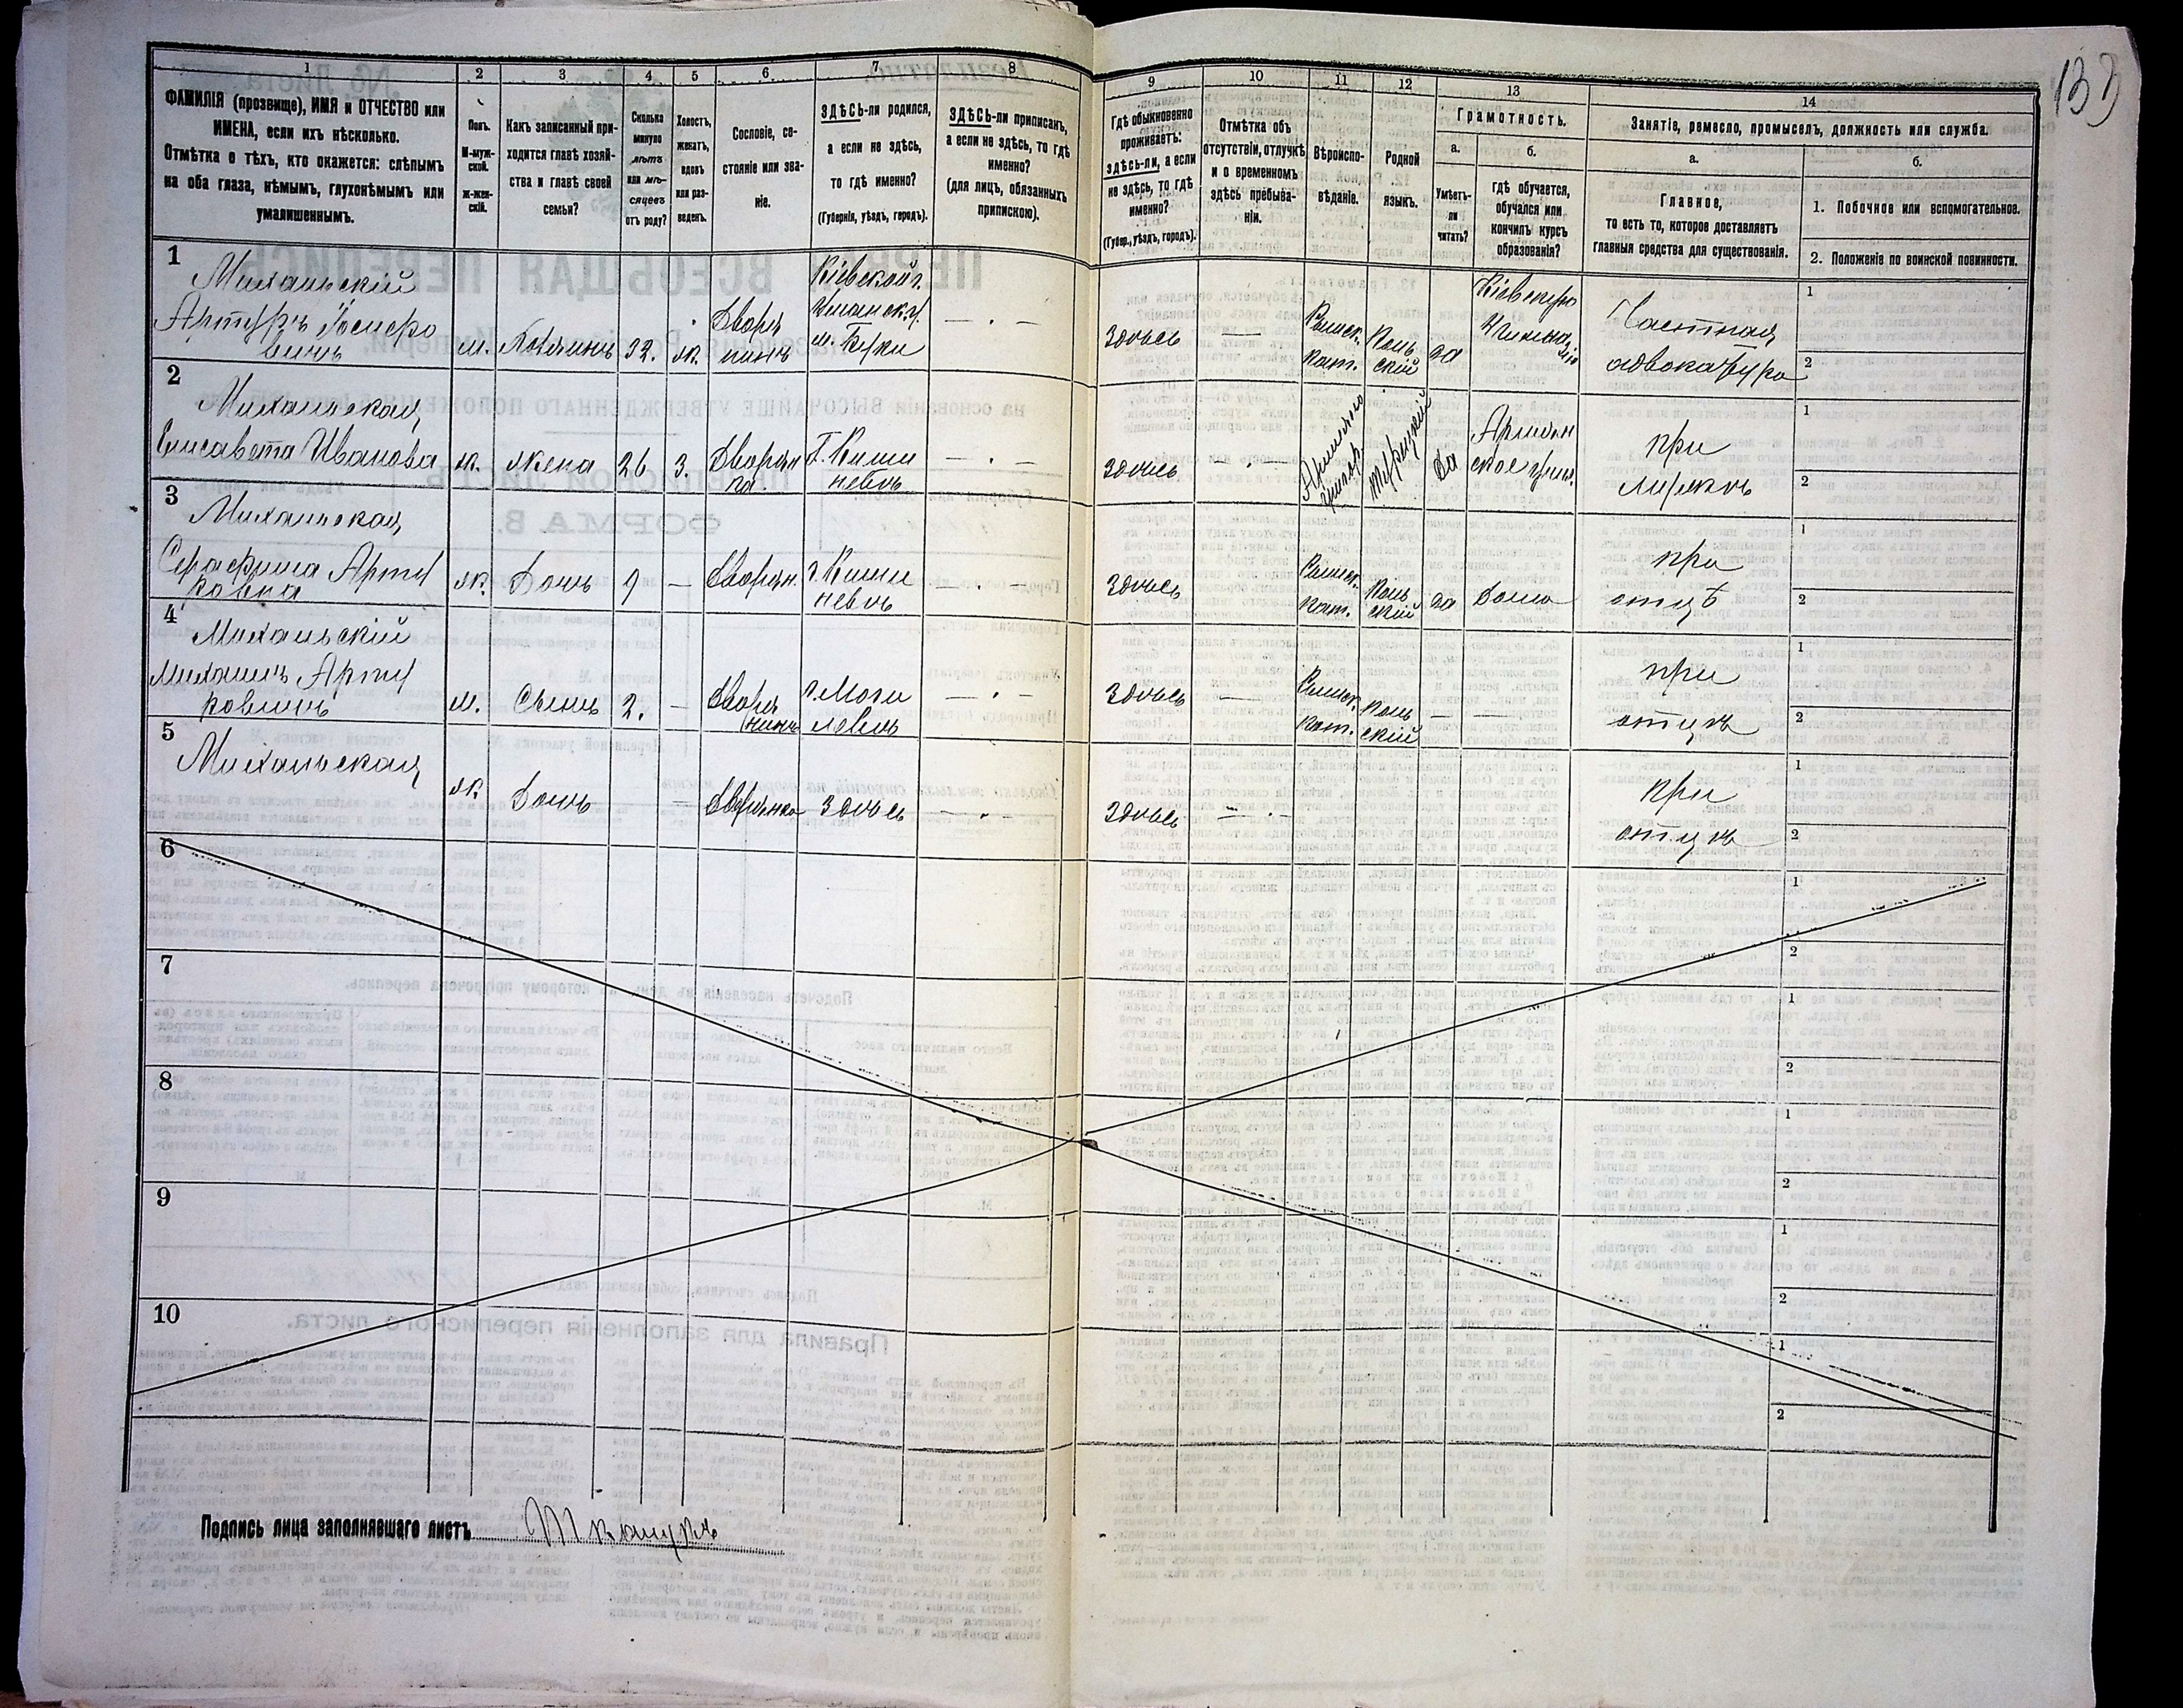 133
1
2
3
4
5
6
7
8
9
10
11
12
13
14
ФАМИЛІЯ (прозвище), ИМЯ и ОТЧЕСТВО или
ИМЕНА, если ихъ нѣсколько.
Отмѣтка о тѣхъ, кто окажется: слѣпымъ
на оба глаза, нѣмымъ, глухонѣмымъ или
умалишеннымъ.
Полъ.
М-муж-
ской.
Ж-жен-
скій.
Какъ записанный при-
ходится главѣ хозяй-
ства и главѣ своей
семьи?
Сколько
минуло
лѣтъ
или мѣ-
сяцевъ
отъ роду?
Холостъ,
женатъ,
вдовъ
или раз-
веденъ.
Сословіе, со-
стояніе или зва-
ніе.
ЗДѢСЬ-ли родился,
а если не здѣсь,
то гдѣ именно?
(Губернія, уѣздъ, городъ).
ЗДѢСЬ-ли приписанъ,
а если не здѣсь, то гдѣ
именно?
(для лицъ, обязанныхъ
припискою).
Гдѣ обыкновенно
проживаетъ:
ЗДѢСЬ-ли, а если
не здѣсь, то гдѣ
именно?
(Губер., уѣздъ, городъ).
Отмѣтка объ
отсутствіи, отлучкѣ
и о временномъ
здѣсь пребыва-
ніи.
Вѣроиспо-
вѣданіе.
Родной
языкъ.
Грамотность.
а.
Умѣетъ-
ли
читать?
б.
гдѣ обучается,
обучался или
кончилъ курсъ
образованія?
Занятіе, ремесло, промыселъ, должность или служба.
а.
Главное,
то есть то, которое доставляетъ
главныя средства для существованія.
б.
1. Побочное или вспомогательное.
2. Положеніе по воинской повинности.
1
Михальскій
Артуръ Іосифо
вичъ
м.
Хозяинъ
32.
ж.
Дворя
нинъ
Кіевской г.
Уманск. у.
м. Буки
— . —
Здѣсь
—
Римск.
кат.
Поль
скій
да
Частная
адвокатура
1
2
2
Михальская
Елисавета Иванова
ж.
жена
26
З.
Дворян
ка
Г. Киши
невъ
— . —
здѣсь
— . —
Армяно
григор.
турецкій
да
Армян
ское
при
мужѣ
1
2
3
Михальская
Серафима Арту
ровна
ж.
Дочь
9
—
Дворян.
г. Киши
невъ
— . —
Здѣсь
Римск.
кат.
Поль
скій
да
Дома
при
отцѣ
1
2
4
Михальскій
Михаилъ Арту
ровичъ
м.
Сынъ
2.
—
Дворя
нинъ
г. Моги
левъ
— . —
Здѣсь
—
Римск.
кат.
поль
скій
—
—
при
отцѣ
1
2
5
Михальская
ж
Дочь
—
Дворянка
Здѣсь
— . —
Здѣсь
— . —
при
отцѣ
1
2
6
1
2
7
1
2
8
1
2
9
1
2
10
1
2
Подпись лица заполнявшаго листъ